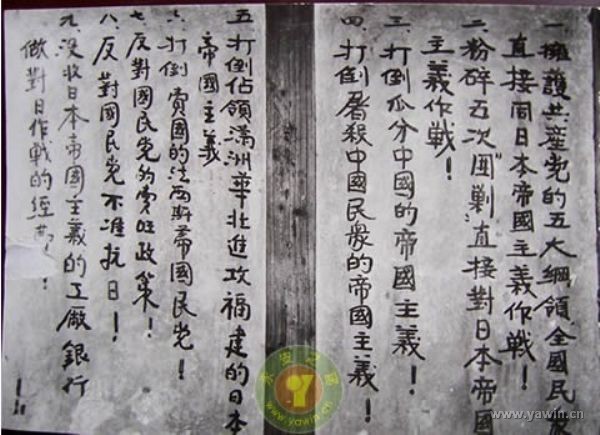 一、擁護共産党的五大綱領全國民
直接同日本帝國主義作戰！
二、粉碎五次囲"剿"直接對日本帝國
主義作戰！
三、打倒瓜分中國的帝國主義！
四、打倒屠殺中國民衆的帝國主義！
五、打倒佔領滿洲華北進攻福建的日本
帝國主義
六、打倒賣國的法西斯蒂國民党！
七、反對國民党的賣國政策！
八、反對國民党不准抗日！
九、沒收日本帝國主義的工廠銀行
做對日作戰的經費！
！！
www.yawin.cn
www.yawin.cn